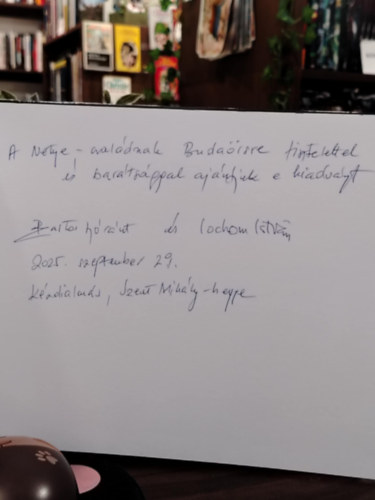 A Netye-családnak Budaörsre tisztelettel
és barátsággal ajánljuk e kiadványt
Bartos Lóránt és Lochom István
2025. szeptember 29.
Kézdialmás, Szent Mihály-hegye